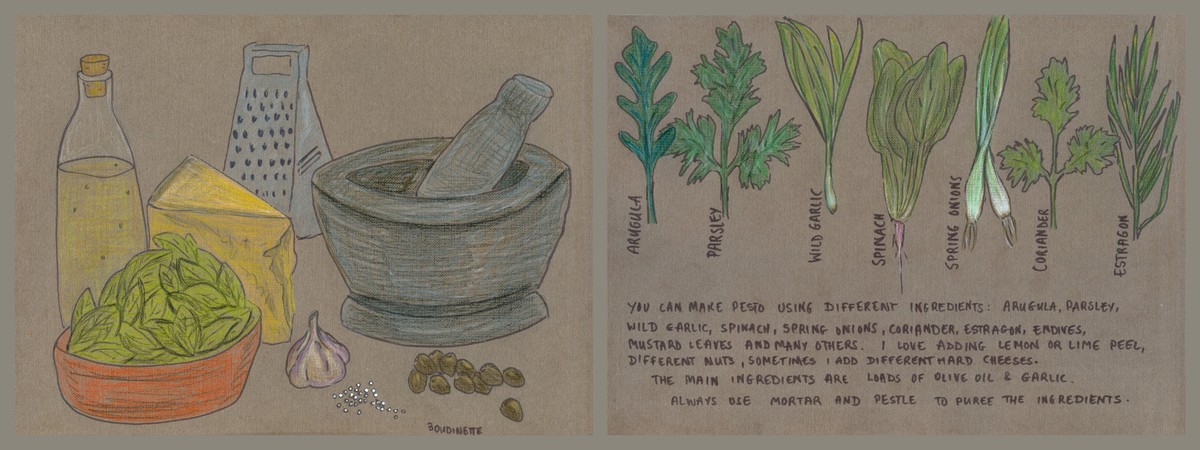 BOUDINETTE
ARUGULA
PARSLEY
WILD GARLIC
SPINACH
SPRING ONIONS
CORIANDER
ESTRAGON
YOU CAN MAKE PESTO USING DIFFERENT INGREDIENTS: ARUGULA, PARSLEY,
WILD GARLIC, SPINACH, SPRING ONIONS, CORIANDER, ESTRAGON, ENDIVES,
MUSTARD LEAVES AND MANY OTHERS. I LOVE ADDING LEMON OR LIME PEEL,
DIFFERENT NUTS, SOMETIMES I ADD DIFFERENT HARD CHEESES.
THE MAIN INGREDIENTS ARE LOADS OF OLIVE OIL & GARLIC.
ALWAYS USE MORTAR AND PESTLE TO PUREE THE INGREDIENTS.